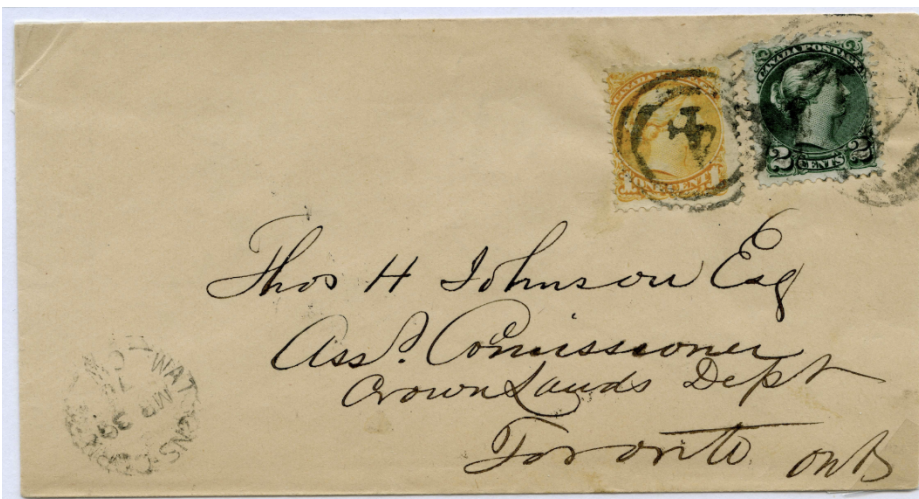 CANADA POSTAGE
2 CENTS 2
1 ONE CENT 1
Thos H Johnson Esq
Asst. Comissioner
Crown Lands Dept
Toronto Ont
WAT NS CORNERS
MR 30